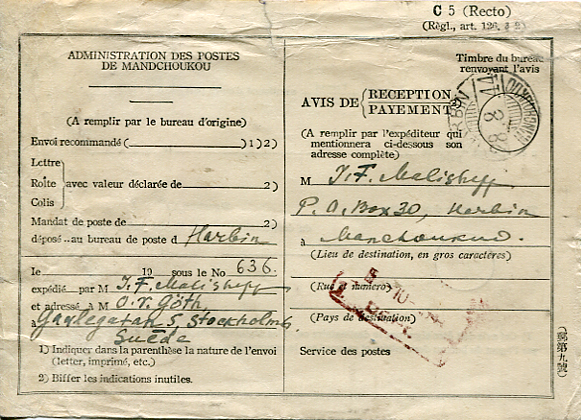 C 5 (Recto)
(Règl., art. 126, § 2)
ADMINISTRATION DES POSTES
DE MANDCHOUKOU
(A remplir par le bureau d'origine)
Envoi recommandé ( )1)2)
Lettre
Roîte avec valeur déclarée de 2)
Colis
Mandat de poste de 2)
déposé au bureau de poste d Harbin
le 19 sous le No 636.
expédié par M J. F. Malisheff
et adressé à M O. v. Göth.
à Gaxlegatan 5, Stockholm.
Suède
1) Indiquer dans la parenthèse la nature de l'envoi
(letter, imprimé, etc.)
2) Biffer les indications inutiles.
Timbre du bureau
renvoyant l'avis
AVIS DE { RECEPTION
PAYEMENT
(A remplir par l'expéditeur qui
mentionnera ci-dessous son
adresse complète)
M J. F. Malisheff
P. O. Box 30, Harbin
à Manchoukuo.
(Lieu de destination, en gros caractères)
(Rue et numéro)
(Pays de destination)
Service des postes
(號第九號)